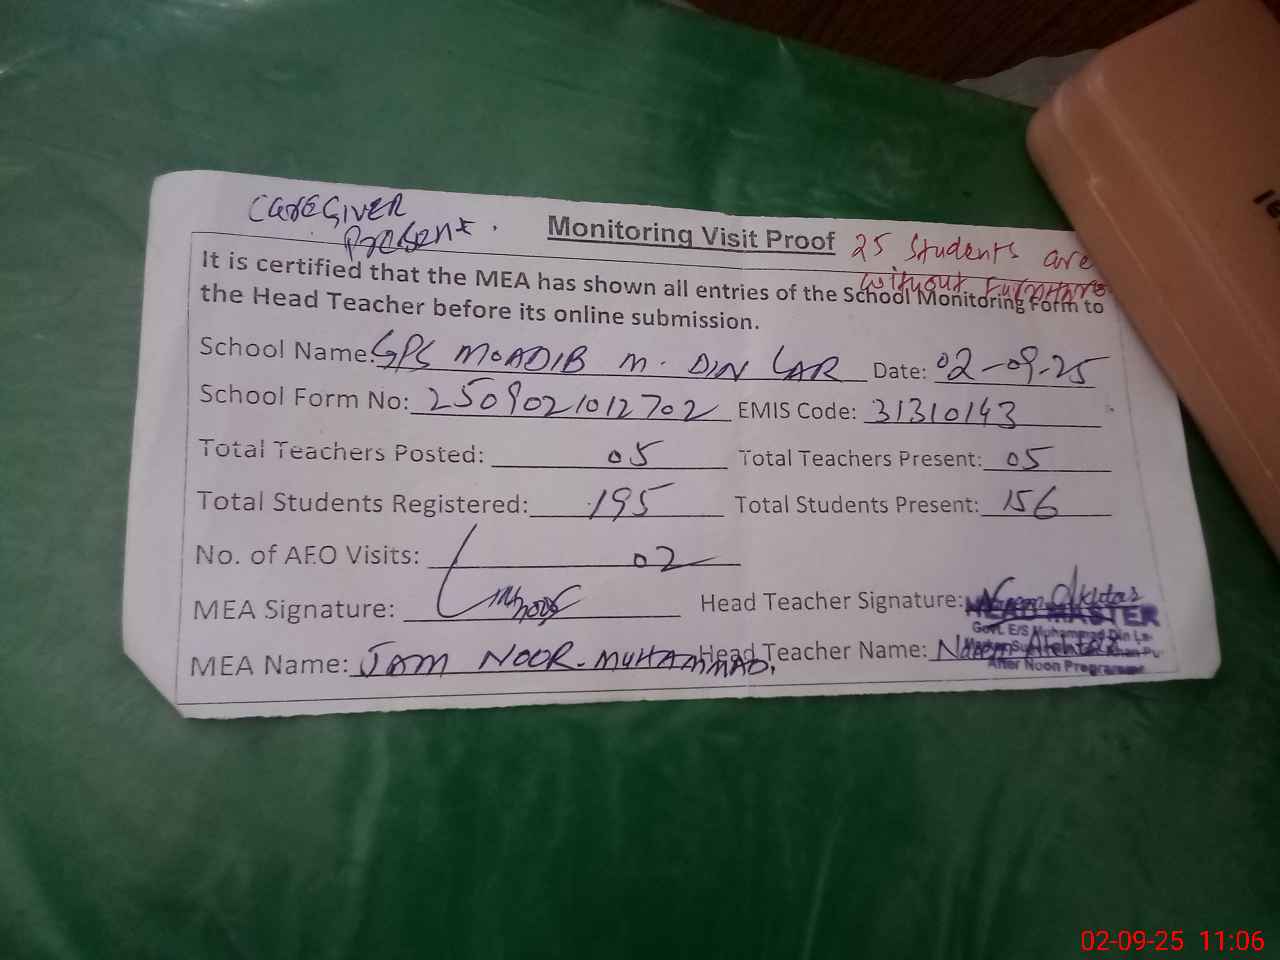 CAREGIVER
Present.
Monitoring Visit Proof
25 Students are
without Furniture
It is certified that the MEA has shown all entries of the School Monitoring Form to
the Head Teacher before its online submission.
School Name: GPS MOADIB M. DIN LAR Date: 02-09-25
School Form No: 2509021012702 EMIS Code: 31310143
Total Teachers Posted: 05 Total Teachers Present: 05
Total Students Registered: 195 Total Students Present: 156
No. of AEO Visits: 02
MEA Signature: Head Teacher Signature: Akhtar
HEAD MASTER
Govt. E/S Muhammad Din La-
MEA Name: JAM NOOR MUHAMMAD. Head Teacher Name: Akhtar
After Noon Programme
02-09-25 11:06